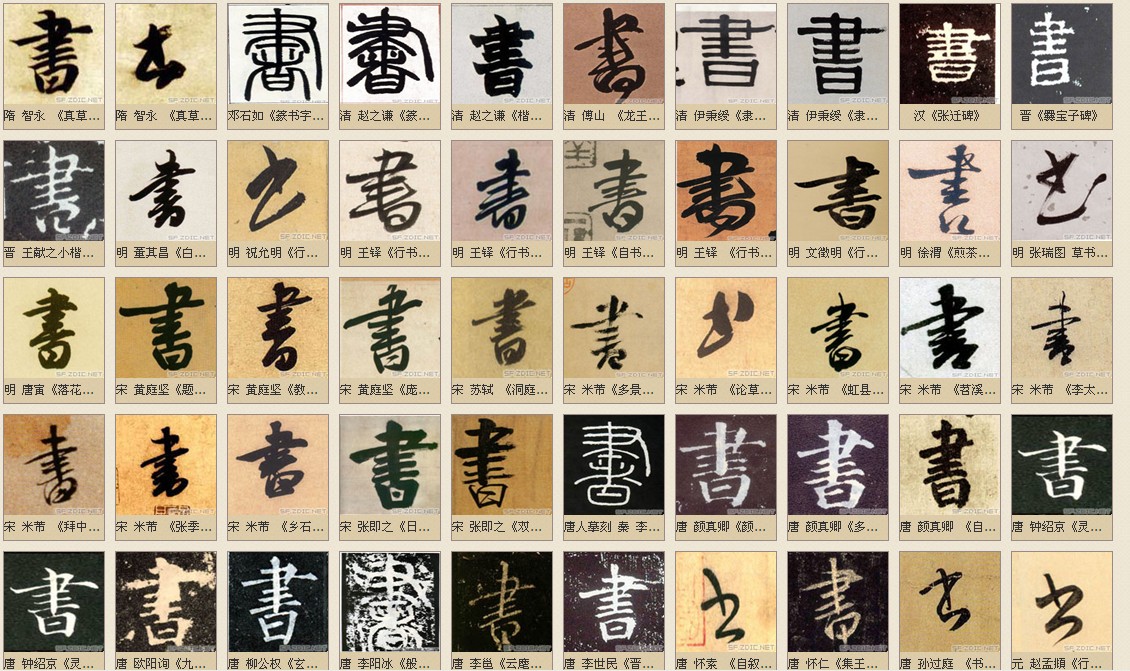 書 書 書 書 書 書 書 書 書 書
隋 智永 《真草... 隋 智永 《真草... 邓石如《篆书字... 清 赵之谦《篆... 清 赵之谦《楷... 清 傅山 《龙王... 清 伊秉绶《隶... 清 伊秉绶《隶... 汉《张迁碑》 晋《爨宝子碑》
書 書 书 書 書 書 書 書 書 书
晋 王献之小楷... 明 董其昌《白... 明 祝允明《行... 明 王铎《行书... 明 王铎《行书... 明 王铎《自书... 明 王铎 《行书... 明 文徵明《行... 明 徐渭《煎茶... 明 张瑞图 草书...
書 書 書 書 書 書 书 書 書 書
明 唐寅《落花... 宋 黄庭坚《题... 宋 黄庭坚《教... 宋 黄庭坚《庞... 宋 苏轼 《洞庭... 宋 米芾《多景... 宋 米芾 《论草... 宋 米芾 《虹县... 宋 米芾 《苕溪... 宋 米芾 《李太...
書 書 書 書 書 書 書 書 書 書
宋 米芾 《拜中... 宋 米芾 《张季... 宋 米芾 《乡石... 宋 张即之《日... 宋 张即之《双... 唐人摹刻 秦 李... 唐 颜真卿《颜... 唐 颜真卿《多... 唐 颜真卿 《自... 唐 钟绍京《灵...
書 書 書 書 書 書 书 書 书 书
唐 钟绍京《灵... 唐 欧阳询《九... 唐 柳公权《玄... 唐 李阳冰《般... 唐 李邕《云麾... 唐 李世民《晋... 唐 怀素 《自叙... 唐 怀仁《集王... 唐 孙过庭 《书... 元 赵孟頫《行...